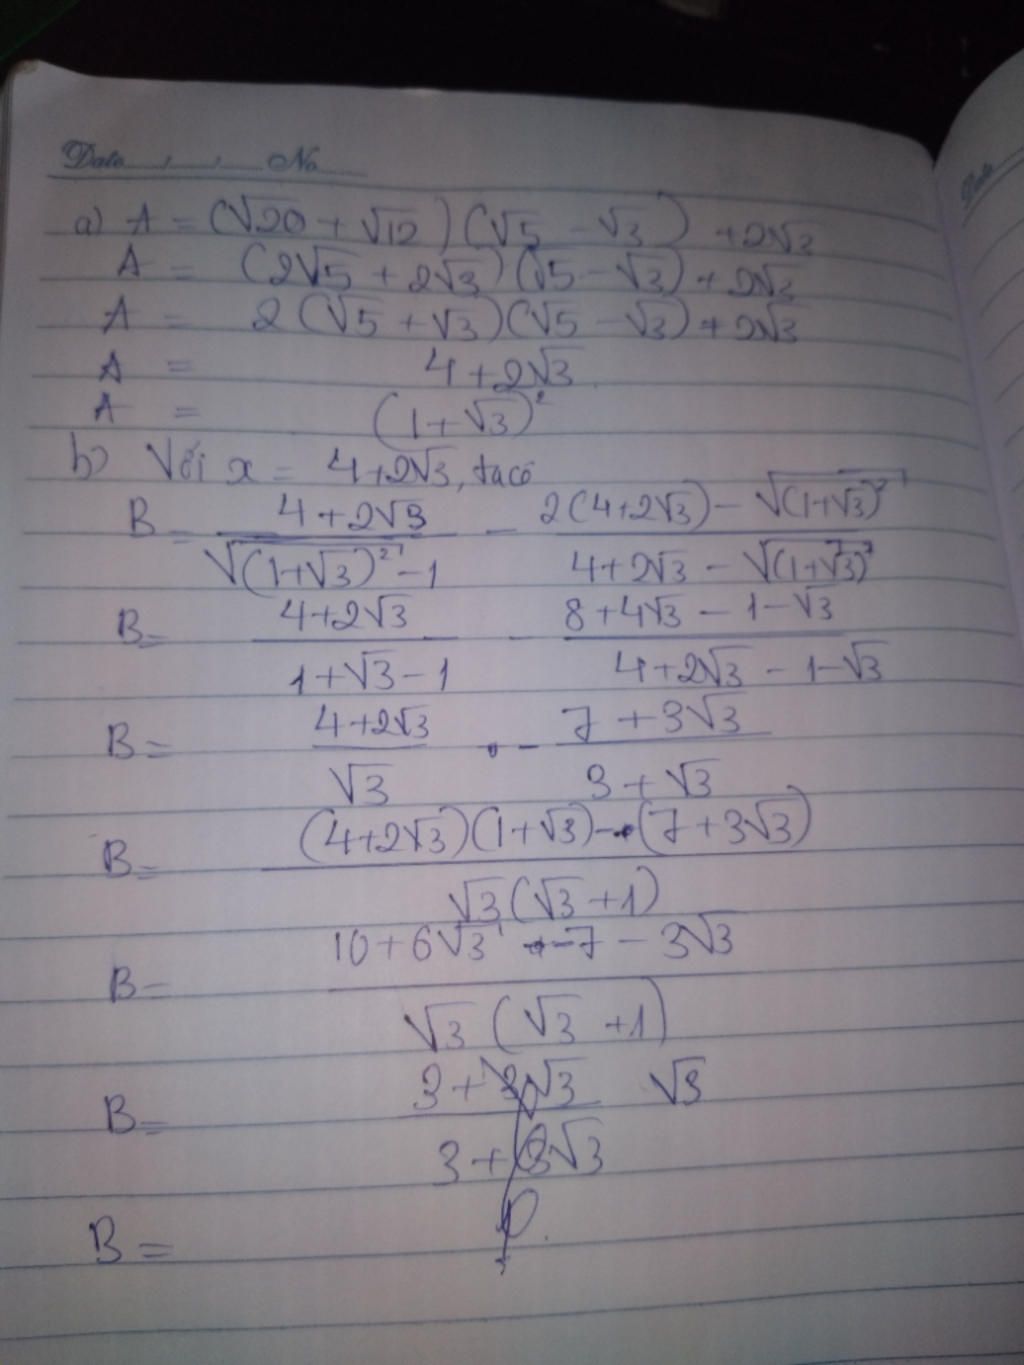 Date , , No
a) A = (√20 + √12)(√5 - √3) + 2√3
A = (2√5 + 2√3)(√5 - √3) + 2√3
A = 2(√5 + √3)(√5 - √3) + 2√3
A = 4 + 2√3
A = (1 + √3)²
b) Với x = 4 + 2√3, ta có
B = (4 + 2√3)/(√((1 + √3)²) - 1) - (2(4 + 2√3) - √((1 + √3)²))/(4 + 2√3 - √((1 + √3)²))
B = (4 + 2√3)/(1 + √3 - 1) - (8 + 4√3 - 1 - √3)/(4 + 2√3 - 1 - √3)
B = (4 + 2√3)/√3 - (7 + 3√3)/(3 + √3)
B = ((4 + 2√3)(1 + √3) - (7 + 3√3))/(√3(√3 + 1))
B = (10 + 6√3 - 7 - 3√3)/(√3(√3 + 1))
B = (3 + 3√3)/(3 + √3) √3
B =